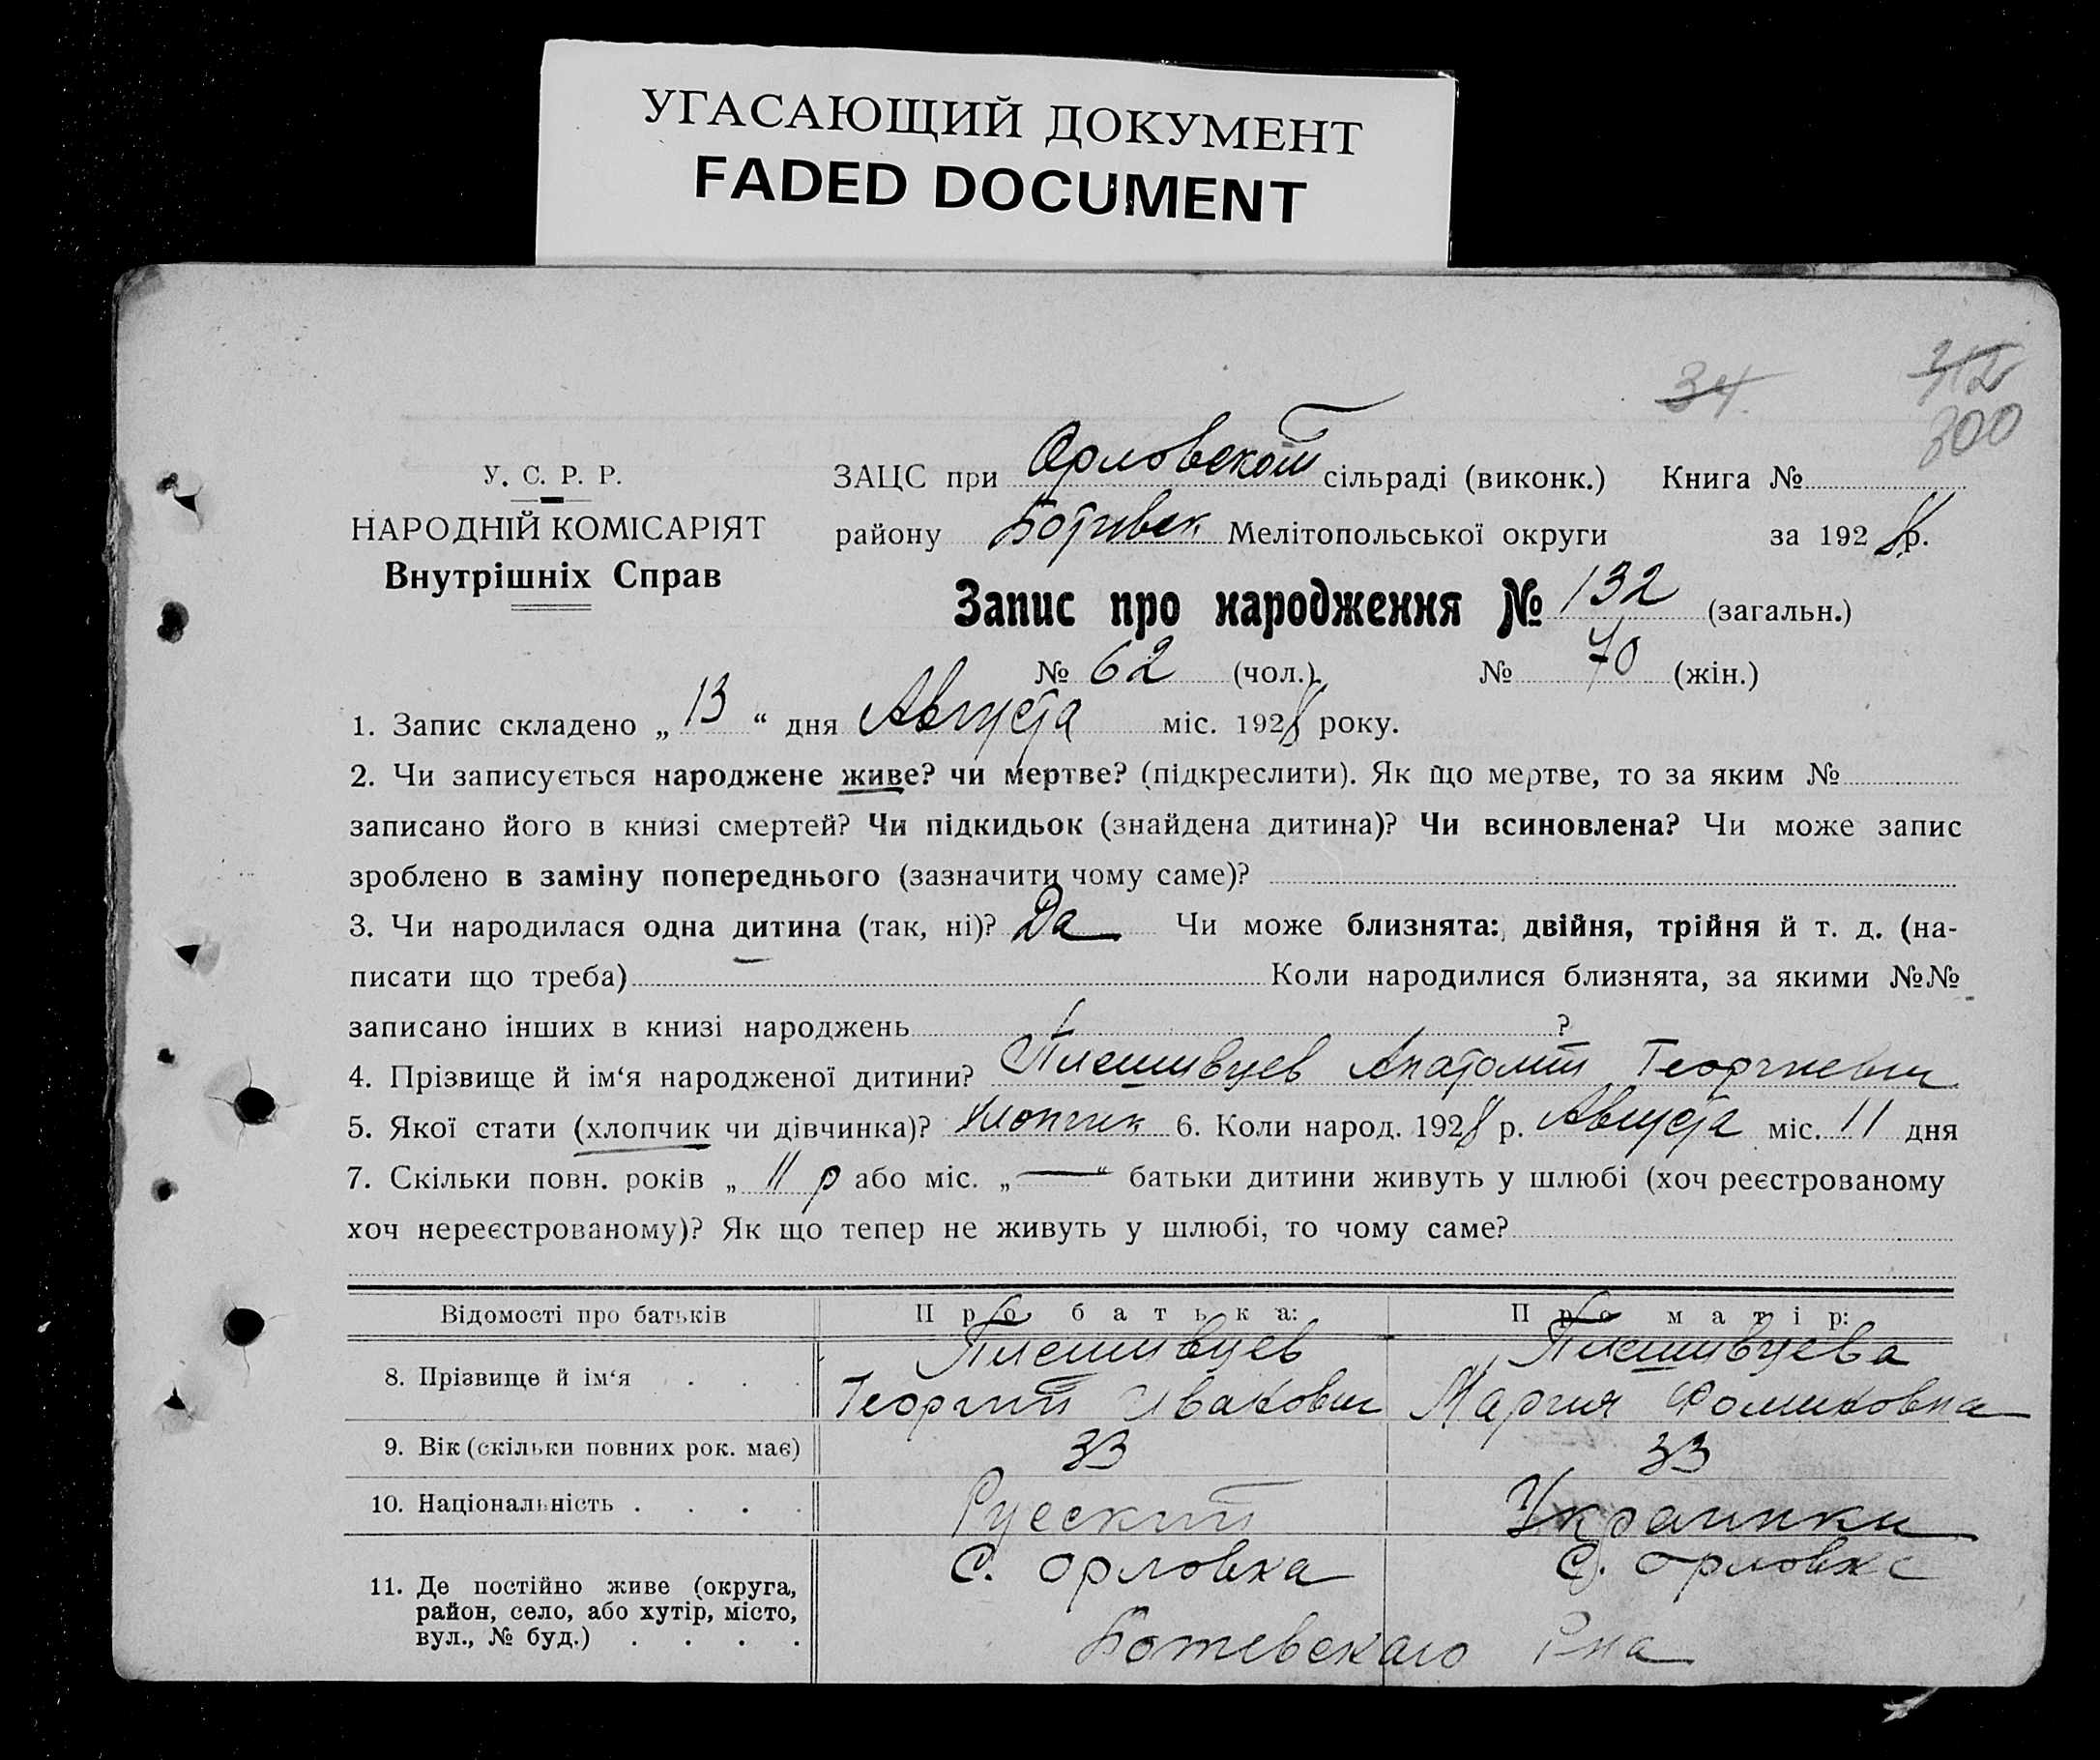 УГАСАЮЩИЙ ДОКУМЕНТ
FADED DOCUMENT
34.
312
300
У. С. Р. Р.
НАРОДНІЙ КОМІСАРІЯТ
Внутрішніх Справ
ЗАЦС при Орловской сільраді (виконк.) Книга №
району Ботивск Мелітопольської округи за 1928 р.
Запис про народження № 132 (загальн.)
№ 62 (чол.) № 70 (жін.)
1. Запис складено „ 13 “ дня Августа міс. 1928 року.
2. Чи записується народжене живе? чи мертве? (підкреслити). Як що мертве, то за яким №
записано його в книзі смертей? Чи підкидьок (знайдена дитина)? Чи всиновлена? Чи може запис
зроблено в заміну попереднього (зазначити чому саме)?
3. Чи народилася одна дитина (так, ні)? Да Чи може близнята: двійня, трійня й т. д. (на-
писати що треба) Коли народилися близнята, за якими №№
записано інших в книзі народжень ?
4. Прізвище й ім‘я народженої дитини? Плешивцев Анатолий Георгиевич
5. Якої стати (хлопчик чи дівчинка)? Хлопчик 6. Коли народ. 1928 р. Августа міс. 11 дня
7. Скільки повн. років „ 11 р або міс. „ — “ батьки дитини живуть у шлюбі (хоч реєстрованому
хоч нереєстрованому)? Як що тепер не живуть у шлюбі, то чому саме?
Відомості про батьків Про батька: Про матір:
8. Прізвище й ім‘я . . . Плешивцев Георгий Иванович Плешивцева Мария Фоминовна
9. Вік (скільки повних рок. має) 33 33
10. Національність . . . . Русский Украинки
11. Де постійно живе (округа, С. Орловка С. Орловка
район, село, або хутір, місто,
вул., № буд.) . . . . Ботевскаго Рна